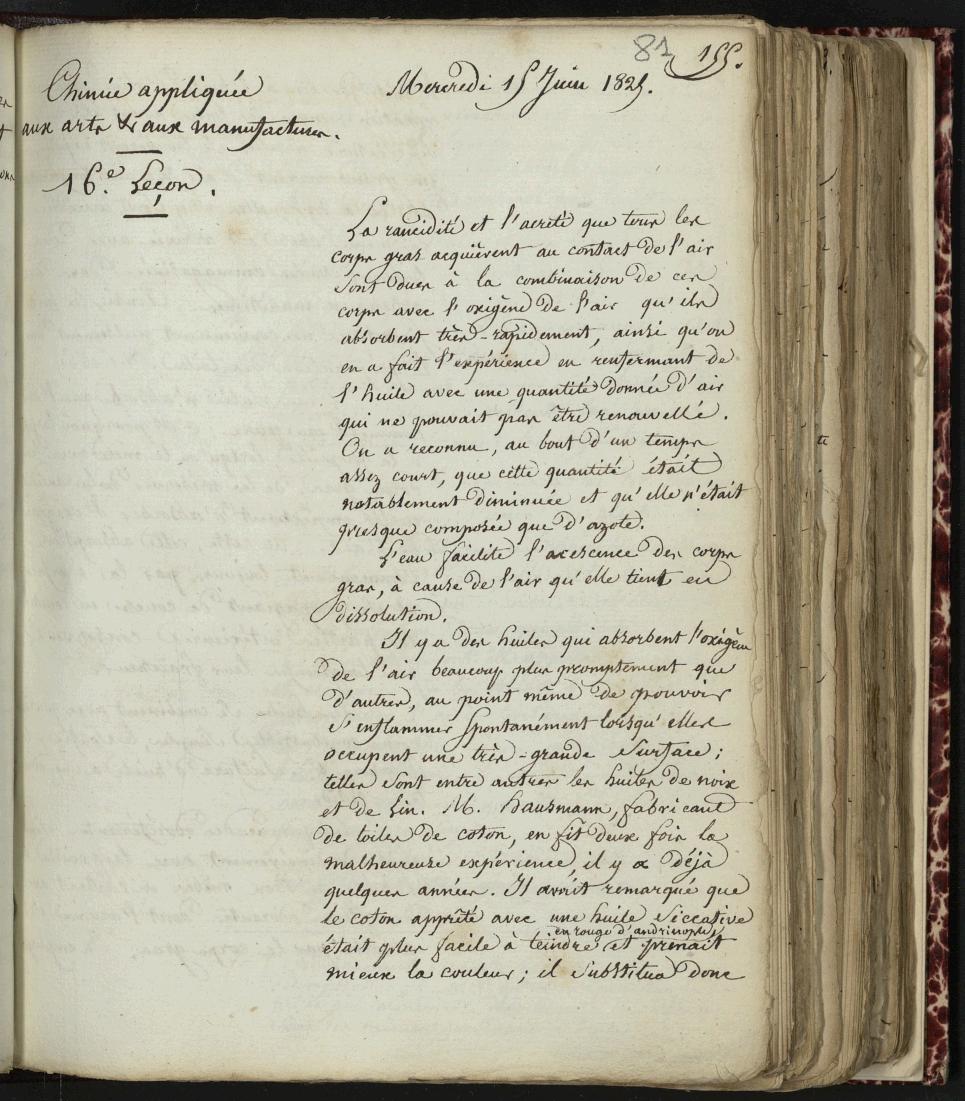 81 155.
Chimie appliquée
aux arts & aux manufactures.
Mercredi 15 Juin 1825.
16.e Leçon.
La rancidité et l'acreté que tous les
corps gras acquièrent au contact de l'air
sont dues à la combinaison de ces
corps avec l'oxigène de l'air qu'ils
absorbent très-rapidement, ainsi qu'on
en a fait l'expérience en renfermant de
l'huile avec une quantité donnée d'air
qui ne pouvait pas être renouvellé.
On a reconnu, au bout d'un temps
assez court, que cette quantité était
notablement diminuée et qu'elle n'était
presque composée que d'azote.
L'eau facilite l'acescence des corps
gras, à cause de l'air qu'elle tient en
dissolution.
Il y a des huiles qui absorbent l'oxigène
de l'air beaucoup plus promptement que
d'autres, au point même de pouvoir
s'enflammer spontanément lorsqu'elles
occupent une très-grande surface;
telles sont entre autres les huiles de noix
et de Lin. M. hausmann, fabricant
de toiles de coton, en fit deux fois la
malheureuse expérience, il y a déjà
quelques années. Il avait remarqué que
le coton apprêté avec une huile siccative
en rouge d'andrinople
était plus facile à teindre et prenait
mieux la couleur; il substitua donc